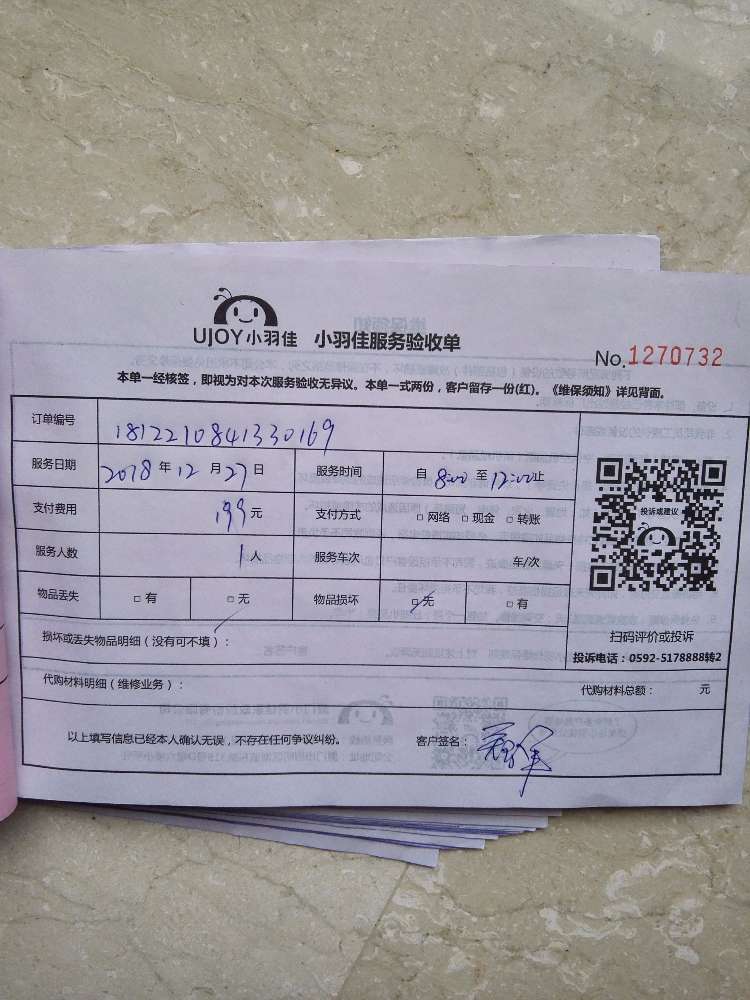 UJOY小羽佳 小羽佳服务验收单
No.1270732
本单一经核签，即视为对本次服务验收无异议。本单一式两份，客户留存一份(红)。《维保须知》详见背面。
订单编号 1812210841330169
服务日期 2018 年 12 月 27 日 服务时间 自 8:00 至 12:00止
支付费用 199 元 支付方式 □ 网络 □ 现金 □ 转账
服务人数 1 人 服务车次 车/次
物品丢失 □ 有 □ 无 物品损坏 □ 无 □ 有
投诉或建议
扫码评价或投诉
投诉电话：0592-5178888转2
损坏或丢失物品明细（没有可不填）：
代购材料明细（维修业务）： 代购材料总额： 元
以上填写信息已经本人确认无误，不存在任何争议纠纷。 客户签名：